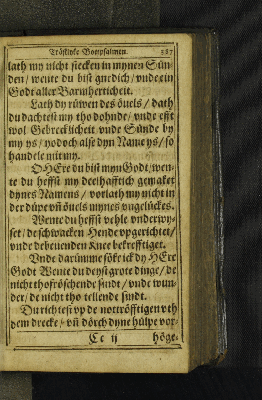 Tröstlyke Boetpsalmen. 287
lath my nicht stecken in mynen Sün-
den/ wente du bist gnedich/ vnde ein
Godt aller Barmherticheit.
Lath dy rüwen des öuels/ dath
du dachtest my tho dohnde/ vnde efft
wol Gebrecklicheit vnde Sünde by
my ys/ yodoch alse dyn Name ys/ so
handele mit my.
O HEre du bist myn Godt/ wen-
te du heffst my deelhafftich gemaket
dynes Namens/ vorlath my nicht in
der düpe vñ öuels mynes vngelückes.
Wente du heffst vehle vnderwy-
set/ de schwacken Hende vpgerichtet/
vnde de beuenden Knee bekrefftiget.
Vnde darümme söke ick dy HEre
Godt Wente du deyst grote dinge/ de
nicht tho fröschende sindt/ vnde wun-
der/ de nicht tho tellende sindt.
Du richtest vp de nottröfftigen vth
dem drecke/ vñ dörch dyne hülpe vor-
Cc ij höge-